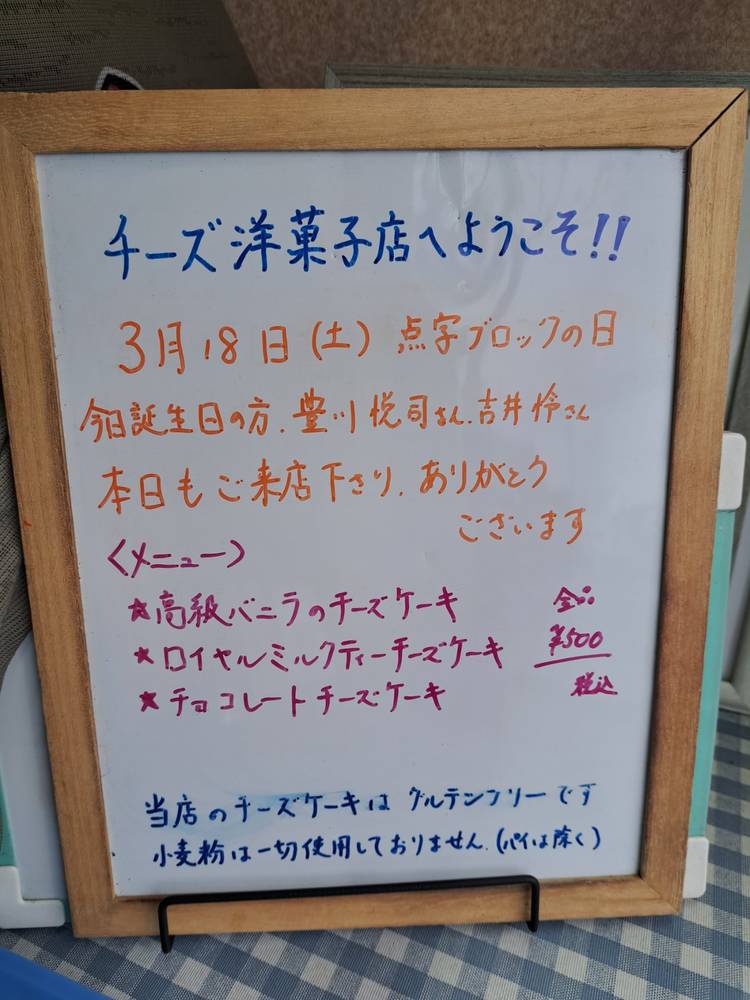 チーズ洋菓子店へようこそ!!
3月18日(土) 点字ブロックの日
今日誕生日の方、豊川悦司さん、吉井怜さん
本日もご来店下さり、ありがとう
ございます
〈メニュー〉
★高級バニラのチーズケーキ
★ロイヤルミルクティーチーズケーキ
★チョコレートチーズケーキ
全品
¥500
税込
当店のチーズケーキは グルテンフリーです
小麦粉は一切使用しておりません。(パイは除く)